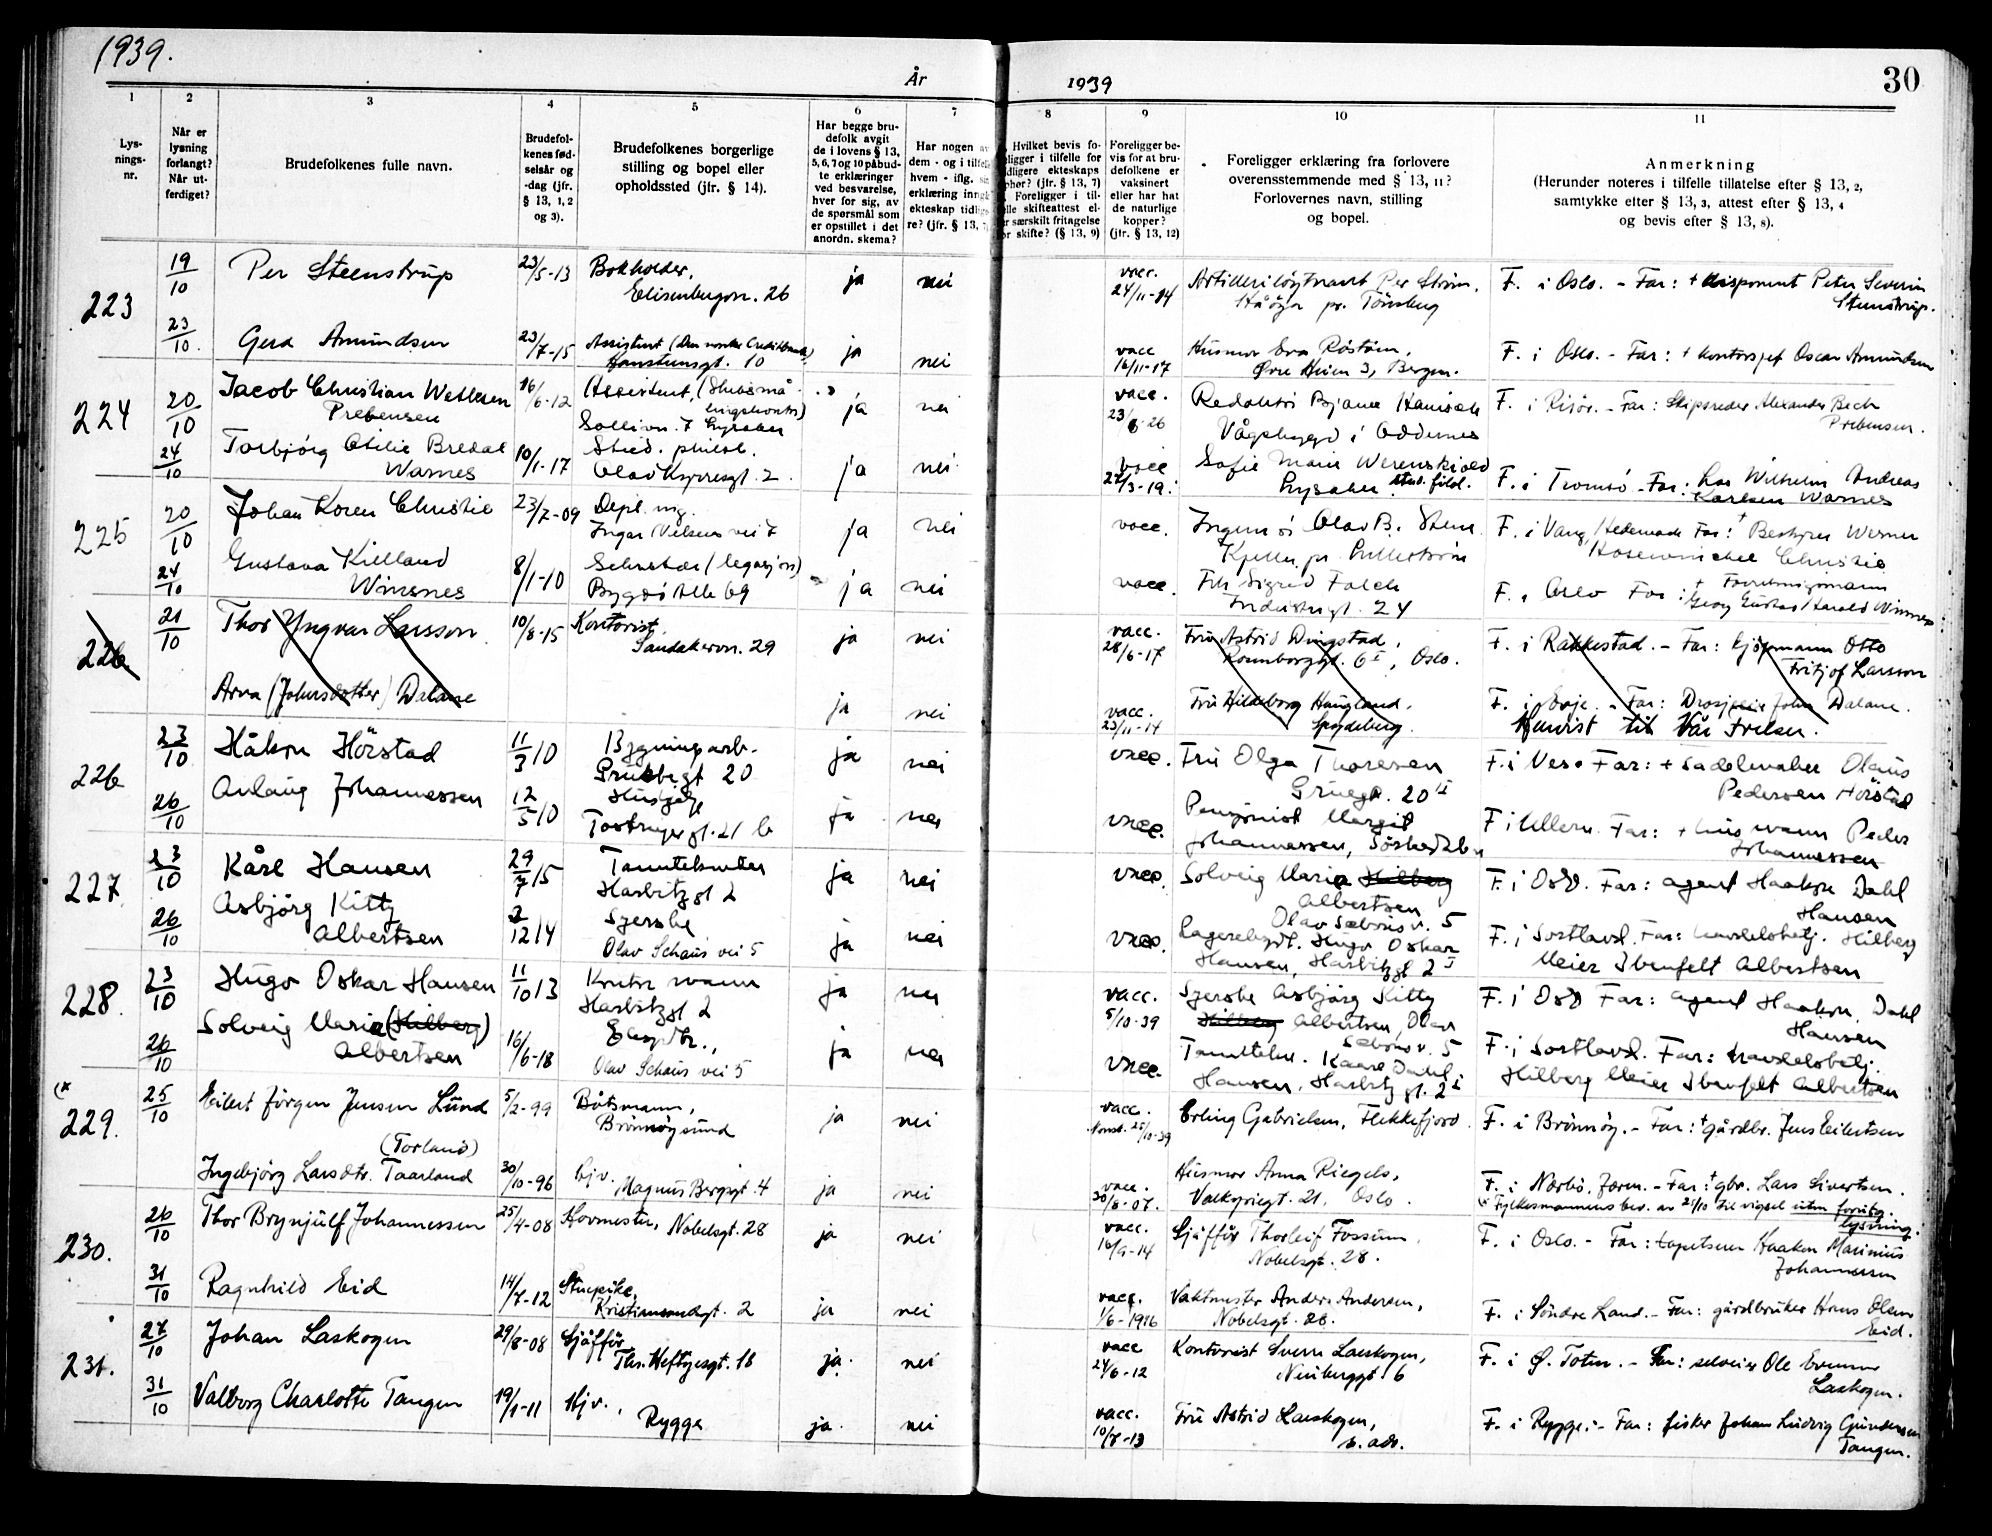 1939.
År
1939
30
1
2
3
4
5
6
7
8
9
10
11
Lys-
nings-
nr.
Når er
lysning
forlangt?
Når ut-
ferdiget?
Brudefolkenes fulle navn.
Brudefol-
kenes fød-
selsår og
-dag (jfr.
§ 13, 1, 2
og 3).
Brudefolkenes borgerlige
stilling og bopel eller
opholdssted (jfr. § 14).
Har begge bru-
defolk avgit
de i lovens § 13,
5, 6, 7 og 10 påbud-
te erklæringer
ved besvarelse,
hver for sig, av
de spørsmål som
er opstillet i det
anordn. skema?
Har nogen av
dem - og i tilfelle
hvem - iflg. sin
erklæring inngått
ekteskap tidlige-
re? (jfr. § 13,
Hvilket bevis fo-
ligger i tilfelle for
dligere ekteskaps
phør? (jfr. § 13, 7)
Foreligger i til-
elle skifteattest el-
r særskilt fritagelse
or skifte? (§ 13, 9)
Foreligger be-
vis for at bru-
defolkene er
vaksinert
eller har hat
de naturlige
kopper?
(jfr. § 13, 12)
Foreligger erklæring fra forlovere
overensstemmende med § 13, 11?
Forlovernes navn, stilling
og bopel.
Anmerkning
(Herunder noteres i tilfelle tillatelse efter § 13, 2,
samtykke efter § 13, 3, attest efter § 13, 4
og bevis efter § 13, 8).
223
19/10
Per Steenstrup
23/5-13
Bokholder,
Elisenbergvn. 26
ja
nei
vacc.
24/11-14
Artilleriløytnant Per Strøm,
Håöya pr. Tönsberg
F. i Oslo. - Far: + disponent Peter Severin
Steenstrup.
23/10.
Gerd Amundsen
23/7-15
Assistent (Den norske Creditbank)
Hansteensgt. 10
ja
nei
vacc
16/11-17
Husmor Eva Röström,
Øvre 3, Bergen.
F. i Oslo. - Far: + kontorsjef Oscar Amundsen
224
20/10
Jacob Christian Wetlesen
Prebensen
16/6-12
Assistent,
Sollivn. 7 Lysaker
ja
nei
vacc.
23/6-26
Redaktör Bjarne
Vågsbygd i Oddernes
F. i Risör. - Far: Skipsreder Alexander Bech
Prebensen.
24/10
Torbjörg Otilie Bredal
Warnes
10/1-17
Stud. philol.
Olav Kyrresgt. 2.
ja
nei
vacc
27/3-19.
Sofie Marie Werenskiold
Lysaker stud. filol.
F. i Tromsö - Far: Lars Wilhelm Andreas
Karlsen Warnes
225
20/10
Johan Koren Christie
23/7-09
Dipl. ing.
Inger Nilsens vei 7
ja
nei
vacc.
Ingeniör Olav B. Steen
Kjeller pr. Lilleström
F. i Vang, Hedemark Far: + Bestyrer Werner
Hosewinckel Christie
24/10
Gustava Kielland
Winsnes
8/1-10
Sekretær (legasjon)
Bygdö Alle 69
ja
nei
vacc.
Frk Sigrid Falch
Industrigt. 24
F. i Oslo Far: + Forretningsmann
Georg Gustav Harald Winsnes
226
21/10
Thor Yngvar Larsson
10/8-15
Kontorist,
Sandakervn. 29
ja
nei
vacc.
28/6-17
Fru Astrid Dingstad,
Rosenborggt. 6 I, Oslo.
F. i Rakkestad. - Far: kjöpmann Otto
Fritjof Larsson
Arna (Johnsdotter) Dalane
ja
nei
vacc.
23/11-14
Fru Hildeborg Haugland,
Spydeberg.
F. i Evje. - Far: Drosjeeier John Dalane.
Henvist til Vår Frelser.
226
23/10
Håkon Hörstad
11/3 10
Bygningsarb.
Grünbegt 20
ja
nei
vacc.
Fru Olga Thoresen
Grünegt. 20 II
F. i Nes. Far: + Sadelmaker Olaus
Pedersen Hörstad
26/10
Anlaug Johannessen
12/5 10
Hushjelp
Tostrupsgt. 21 b
ja
nei
vacc.
Pensjonist Margit
Johannessen, Sörkedalen
F i Ullern. Far: + husmann Peder
Johannessen
227.
23/10
Kåre Hansen
29/7 15
Tanntekniker
Harbitzgt 2
ja
nei
vacc.
Solveig Marie Hilberg
Albertsen
Olav Schous v. 5
F. i Oslo. Far: agent Haakon Dahl
Hansen
26/10
Asbjörg Kitty
Albertsen
2/12 14
Syerske
Olav Schous vei 5
ja
nei
vacc.
Lagerekspd. Hugo Oskar
Hansen, Harbitzgt 2 I
F. i Sortland. Far: handelsbetj. Hilberg
Meier Ibenfelt Albertsen
228.
23/10
Hugo Oskar Hansen
11/10 13
Kontormann
Harbitzgt 2
ja
nei
vacc.
5/10-39
Syerske Asbjörg Kitty
Hilberg Albertsen, Olav
Schous v. 5
F. i Oslo Far: agent Haakon Dahl
Hansen
26/10
Solveig Marie (Hilberg)
Albertsen
16/6-18
Ekspdtr.,
Olav Schous vei 5
ja
nei
vacc.
Tanntekn. Kaare Dahl
Hansen, Harbitzgt. 2 I
F. i Sortland. Far: handelsbetj.
Hilberg Meier Ibenfelt Albertsen
(*
229.
25/10
Eilert Jörgen Jensen Lund
5/2-99
Båtsmann,
Brönnöysund
ja
nei
vacc.
25/10-39
Erling Gabrielsen, Flekkefjord.
F. i Brönnöy. - Far: + gårdbr. Jens Eilertsen
(Torland)
Ingebjörg Larsdtr. Taarland
30/10-96
hjv.
Magnus Bergsgt. 4
ja
nei
vacc.
30/8-07.
Husmor Anna Riegels,
Valkyriegt. 21, Oslo.
F. i Nærbö, Jæren. - Far: + gbr. Lars Sivertsen.
(* Fylkesmannens bev. av 21/10 til vigsel uten forutg.
lysning.
230.
26/10
Thor Brynjulf Johannessen
25/4-08
Hovmester, Nobelsgt. 28
ja
nei
vacc.
16/9-14
Sjåffør Thorleif Fossum,
Nobelsgt. 28.
F. i Oslo. - Far: tapetserer Haakon Marinius
Johannessen
31/10
Ragnhild Eid
14/7-12
Stuepike,
Kristiansandgt. 2
ja
nei
vacc.
1/6-1916
Vaktmester Anders Andersen,
Nobelsgt. 28.
F. i Söndre Land. - Far: gårdbruker Hans Olsen
Eid.
231.
27/10
Johan Laskogen
29/8-08
Sjåfför
Ths. Heftyesgt. 18
ja.
nei
vacc
24/6-12
Kontorist Sverre Laeskogen,
Nürnberggt 6
F. i Ø. Toten. - Far: selveier Ole Evensen
Laskogen.
31/10
Valborg Charlotte Tangen
19/1-11
Hjv.,
Rygge
ja.
nei
vacc.
10/7-13
Fru Astrid Laeskogen,
s. adr.
F. i Rygge. - Far: fisker Johan Ludvig Gundersen
Tangen.